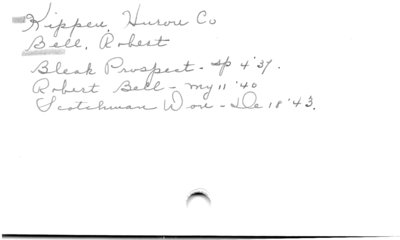 Kippen, Huron Co
Bell, Robert
Bleak Prospect - Ap 4 '37.
Robert Bell - My 11 '40
Scotchman Won - De 18 '43.